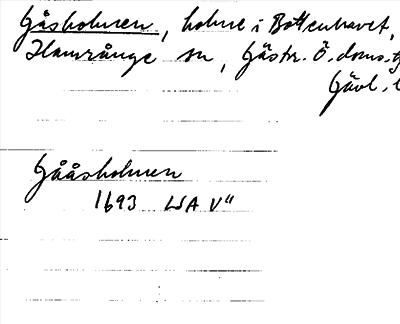 Gåsholmen, holme i Bottenhavet,
Hamrånge sn, Gästr. Ö. doms.
Gävl.
Gååsholmen
1693 LSA V"